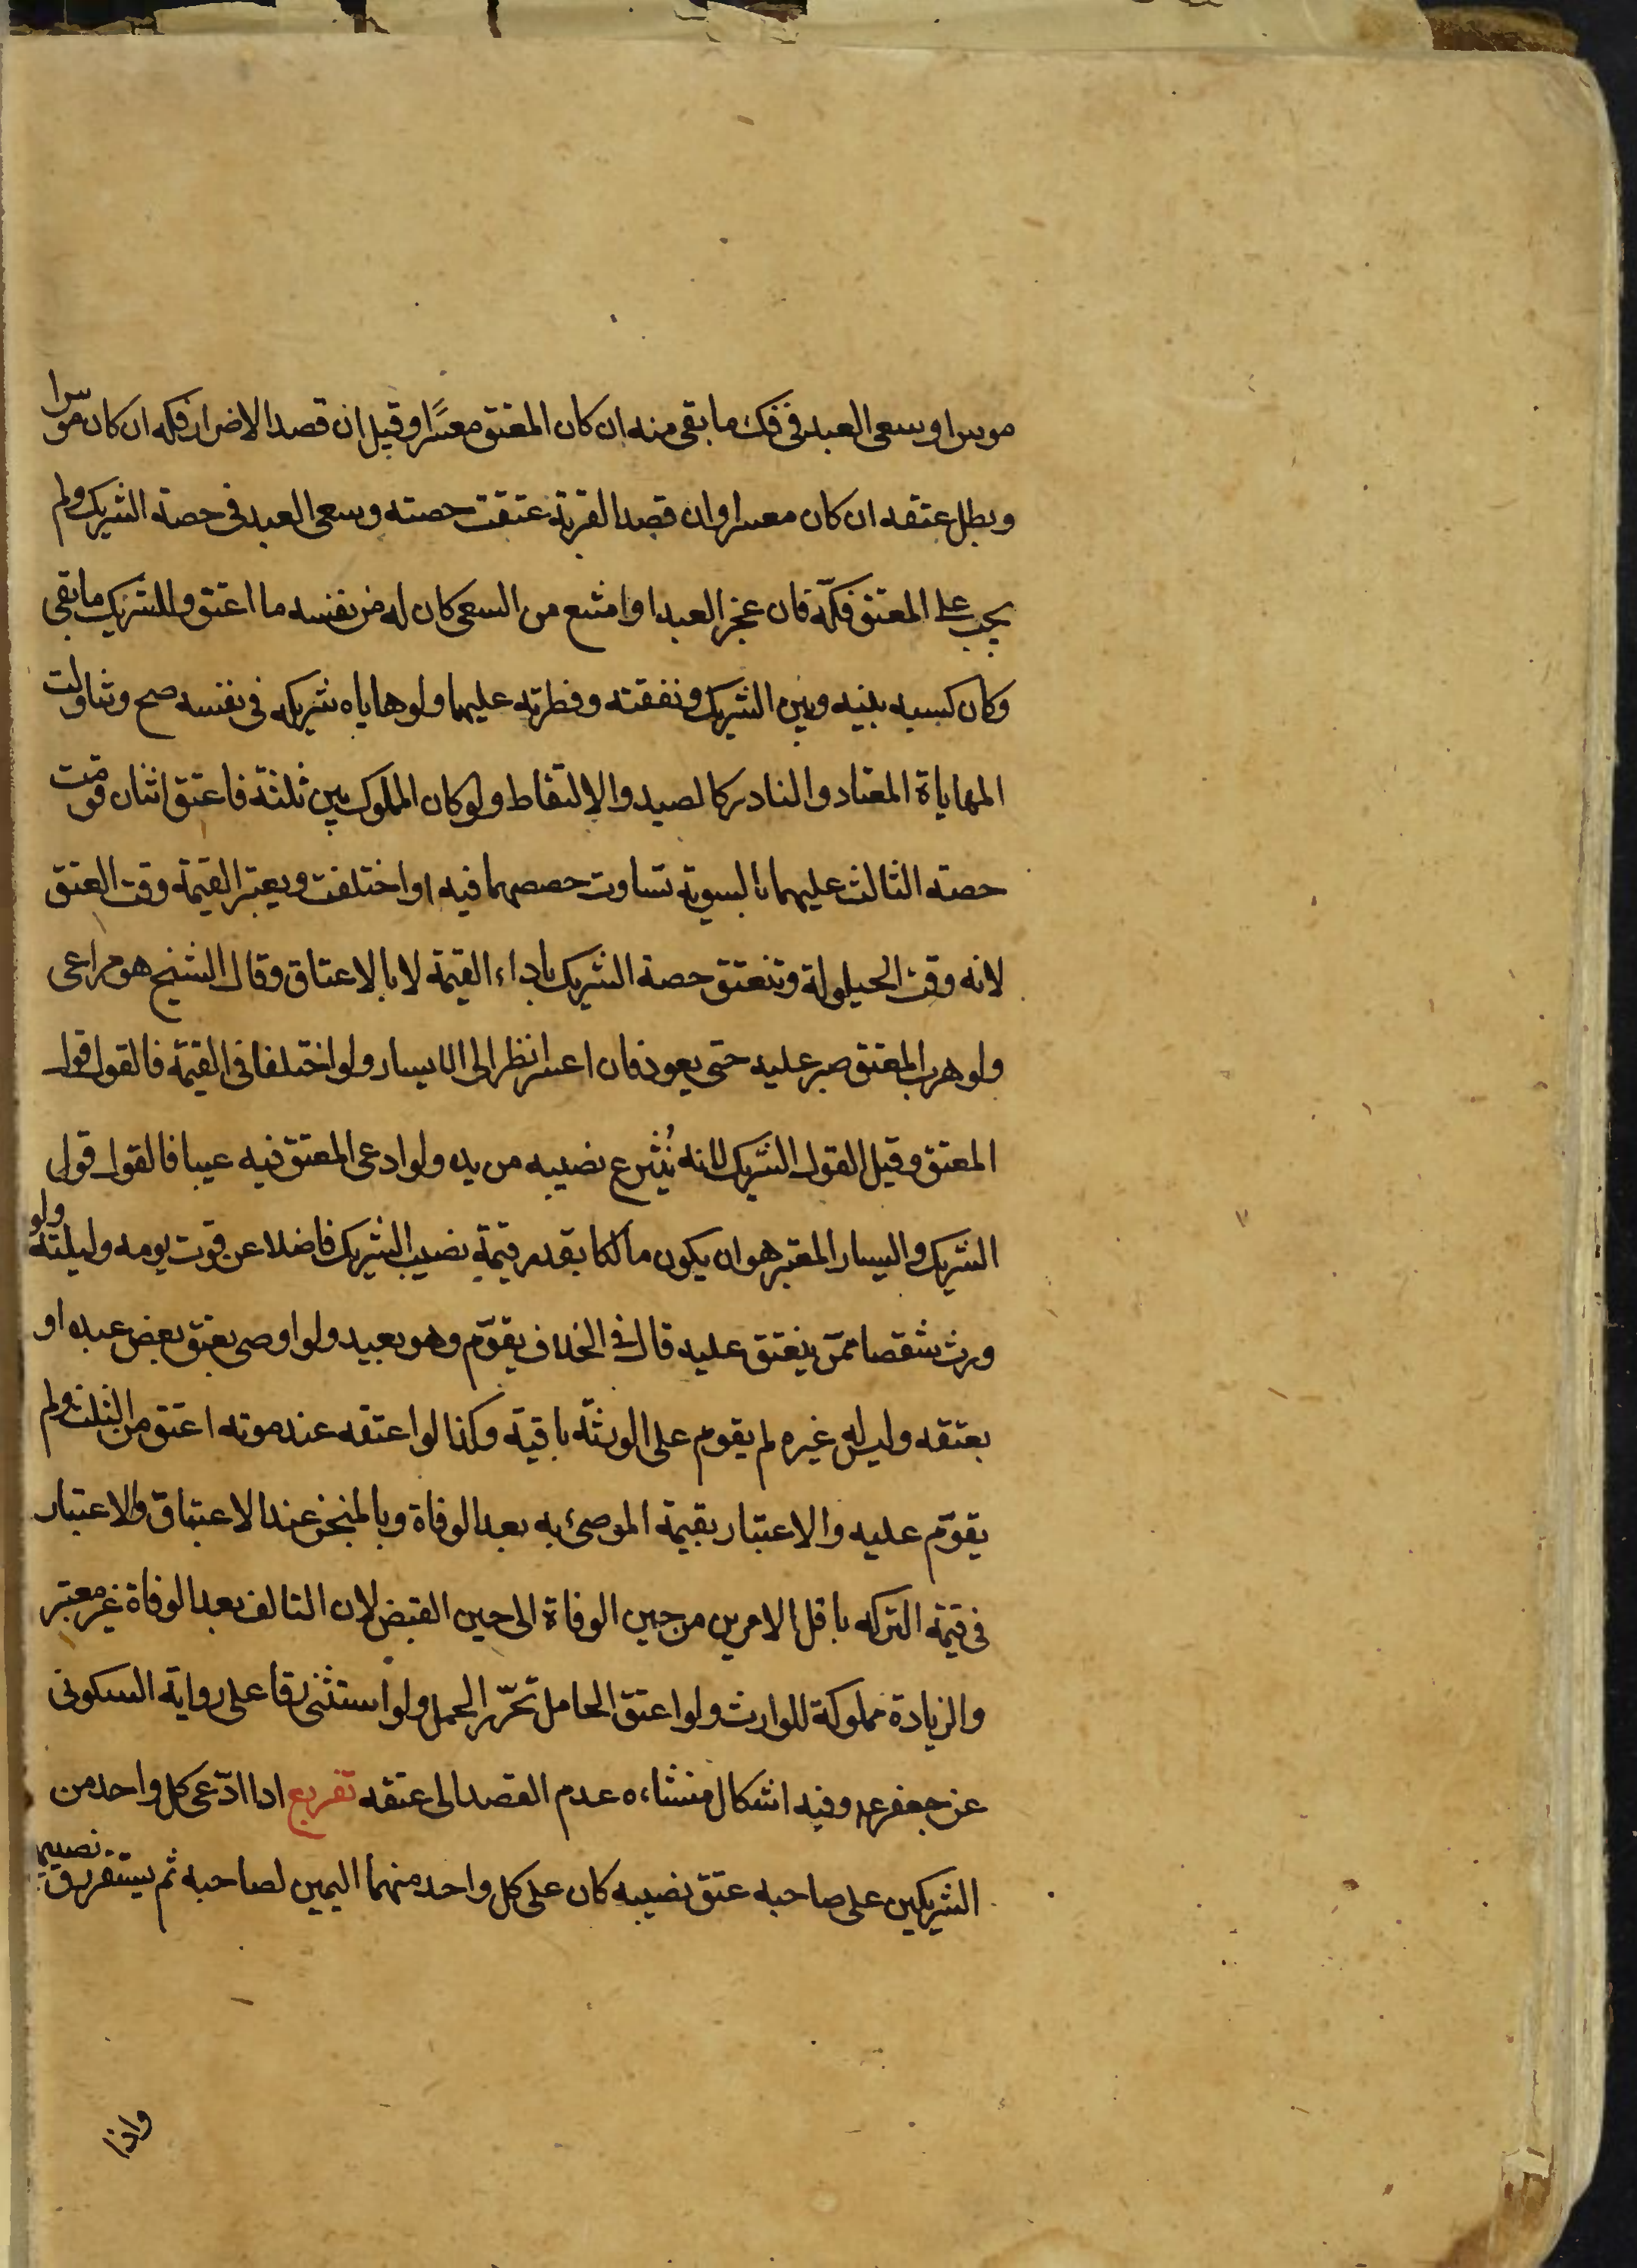 موسرا وسعى العبد فى فك ما بقى منه ان كان المعتق معسًرا وقيل ان قصد الاضرار فكه ان كان موسرا
وبطل عتقه ان كان معسرا وان قصد القربة عتقت حصته وسعى العبد فى حصة الشريك ولم
يجب على المعتق فكّه فان عجز العبد او امتنع من السعى كان له من نفسه ما اعتق وللشريك ما بقى
وكان كسبه بينه وبين الشريك ونفقته وفطرته عليهما ولو هاياه شريكه فى نفسه صح وتناولت
المهاياة المعتاد والنادر كالصيد والالتقاط ولو كان المملوك بين ثلثة فاعتق اثنان قومت
حصته الثالث عليهما بالسوية تساوت حصصهما فيه او اختلفت ويعتبر القيمة وقت العتق
لانه وقت الحيلولة وتنعتق حصة الشريك باداء القيمة لا بالاعتاق وقال الشيخ هو مراعى
ولو هرب المعتق صبر عليه حتى يعود فان اعسر انظر الى الايسار ولو اختلفا فى القيمة فالقول قول
المعتق وقيل القول الشريك لانه يُنتزع نصيبه من يده ولو ادعى المعتق فيه عيبا فالقول قول
الشريك واليسار المعتبر هو ان يكون مالكا بقدر قيمة نصيب الشريك فاضلا عن قوت يومه وليلته ولو
ورث شقصا ممّن ينعتق عليه قال فى الخلاف يقوّم وهو بعيد ولو اوصى بعتق بعض عبده او
بعتقه وليس له غيره لم يقوم على الورثة باقية وكذا لو اعتقه عند موته اعتق من الثلث ولم
يقوّم عليه والاعتبار بقيمة الموصى به بعد الوفاة وبالمنجز عند الاعتاق والاعتبار
فى قيمة التركه باقل الامرين من حين الوفاة الى حين القبض لان التالف بعد الوفاة غير معتبر
والزيادة مملوكة للوارث ولو اعتق الحامل تحرّر الحمل ولو استثنى رقا على رواية السكونى
عن جعفر ع وفيه اشكال منشاءه عدم القصد الى عتقه تفريع اذا ادّعى كل واحد من
الشريكين على صاحبه عتق نصيبه كان على كل واحد منهما اليمين لصاحبه ثم يستقر رق نصيبهما
واذا